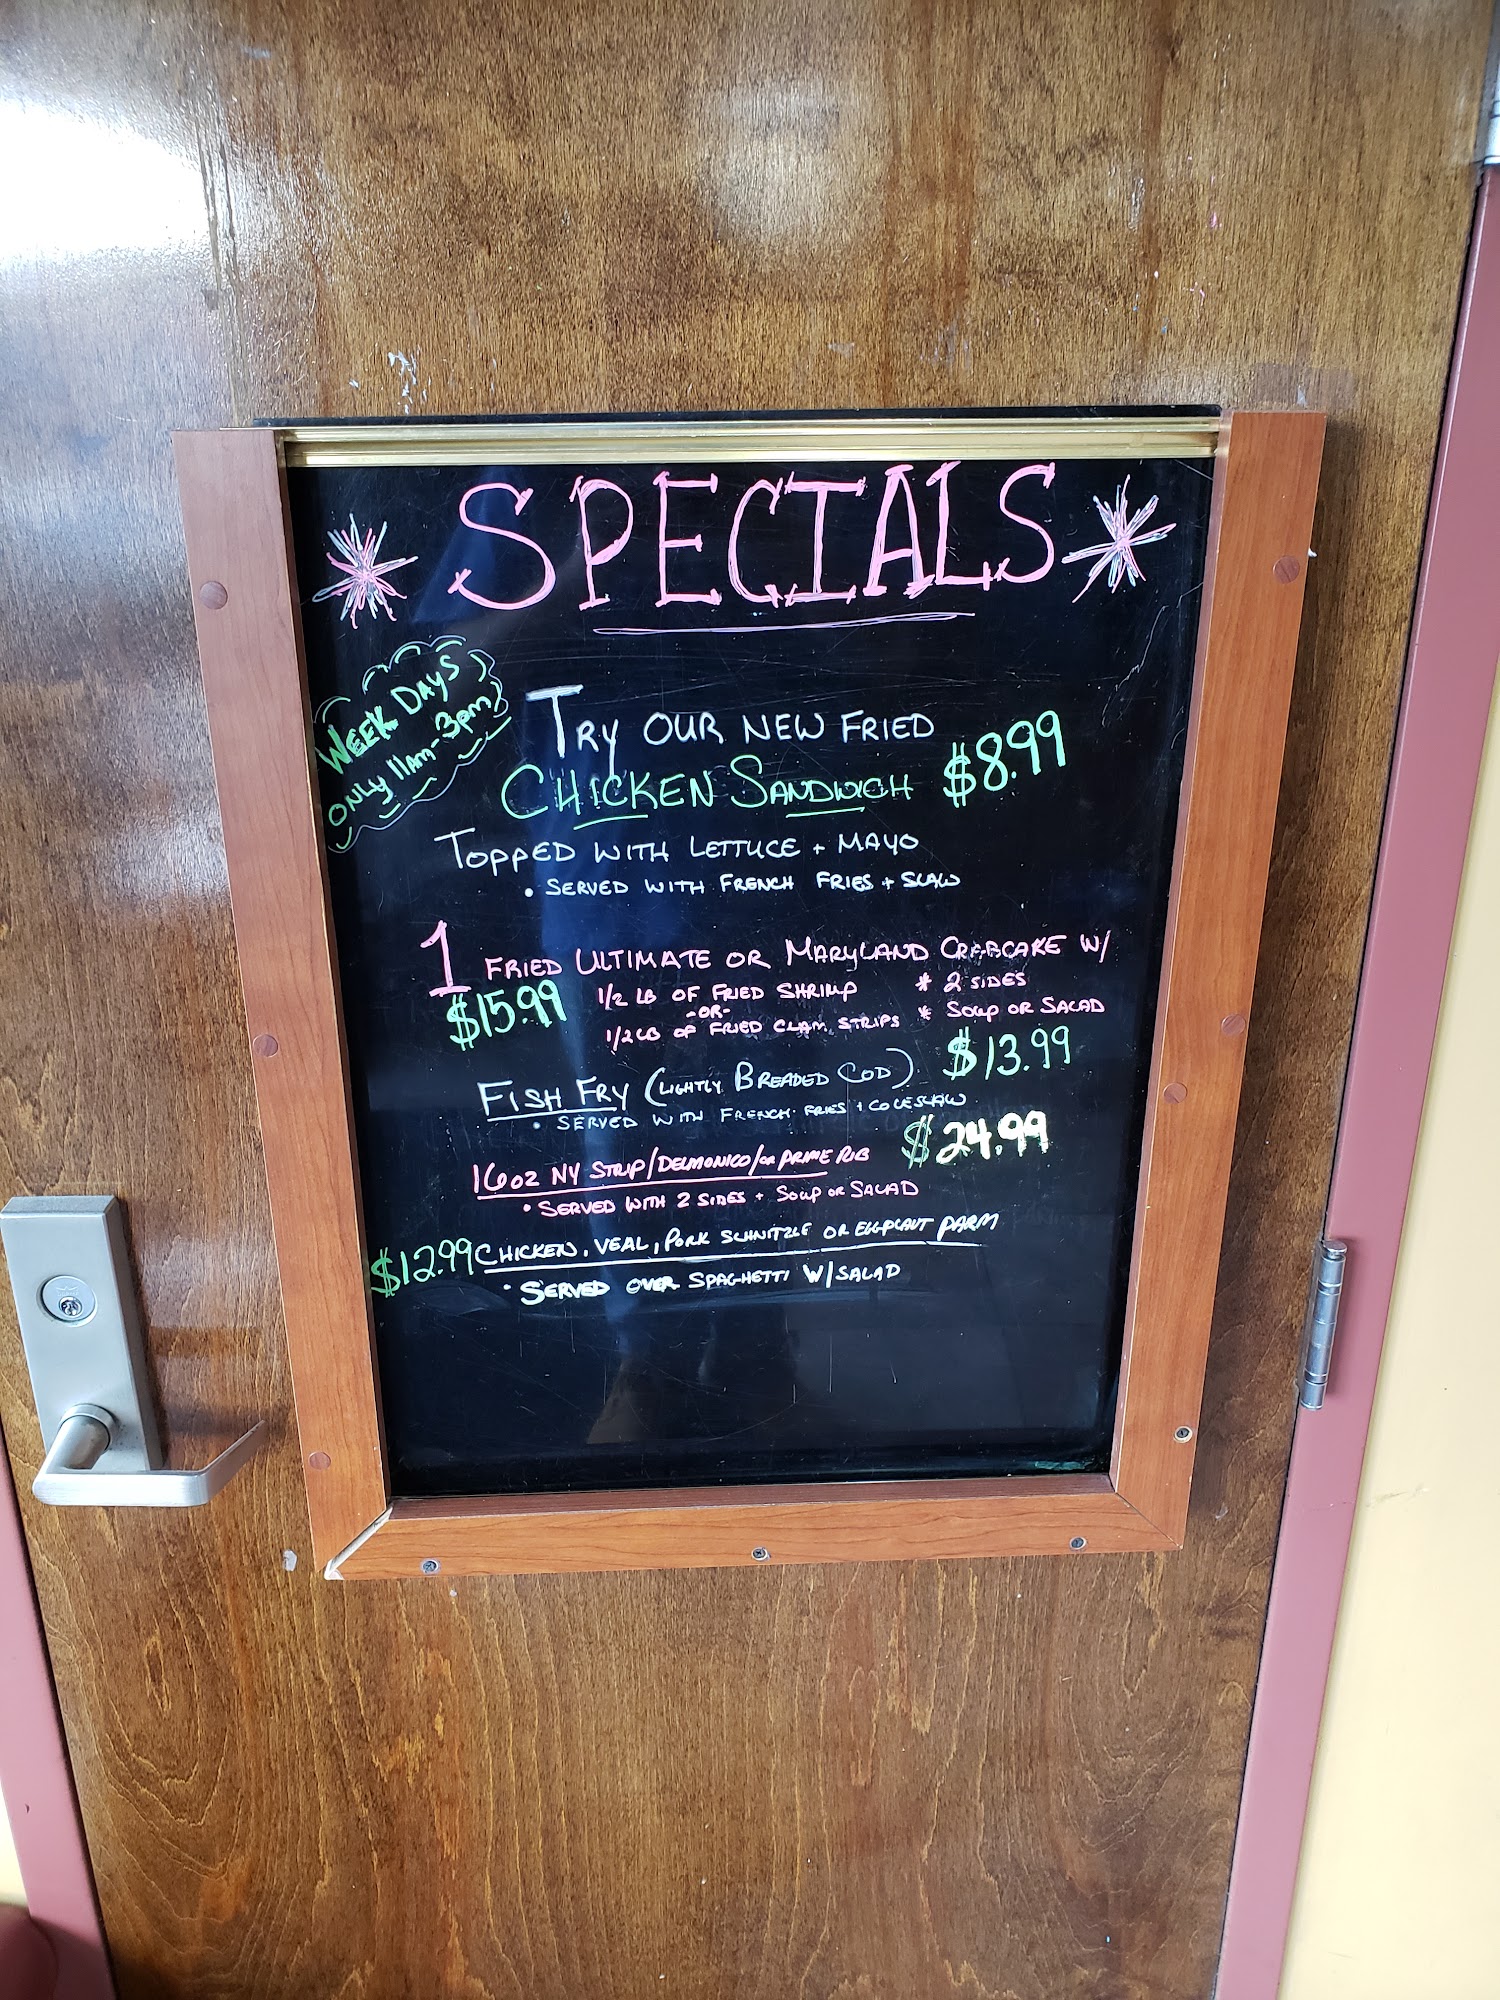 SPECIALS
WEEK DAYS
ONLY 11AM-3PM
TRY OUR NEW FRIED
CHICKEN SANDWICH $8.99
TOPPED WITH LETTUCE + MAYO
• SERVED WITH FRENCH FRIES + SLAW
1 FRIED ULTIMATE OR MARYLAND CRABCAKE W/
$15.99 1/2 LB OF FRIED SHRIMP * 2 SIDES
-OR-
1/2 LB OF FRIED CLAM STRIPS * SOUP OR SALAD
FISH FRY (LIGHTLY BREADED COD) $13.99
• SERVED WITH FRENCH FRIES + COLESLAW
16OZ NY STRIP/DELMONICO/OR PRIME RIB $24.99
• SERVED WITH 2 SIDES + SOUP OR SALAD
$12.99 CHICKEN, VEAL, PORK SCHNITZLE OR EGGPLANT PARM
• SERVED OVER SPAGHETTI W/SALAD